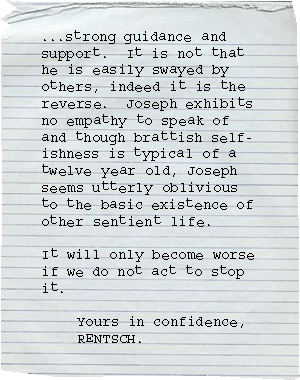 ...strong guidance and
support.  It is not that
he is easily swayed by
others, indeed it is the
reverse.  Joseph exhibits
no empathy to speak of
and though brattish self-
ishness is typical of a
twelve year old, Joseph
seems utterly oblivious
to the basic existence of
other sentient life.

It will only become worse
if we do not act to stop
it.

Yours in confidence,
RENTSCH.